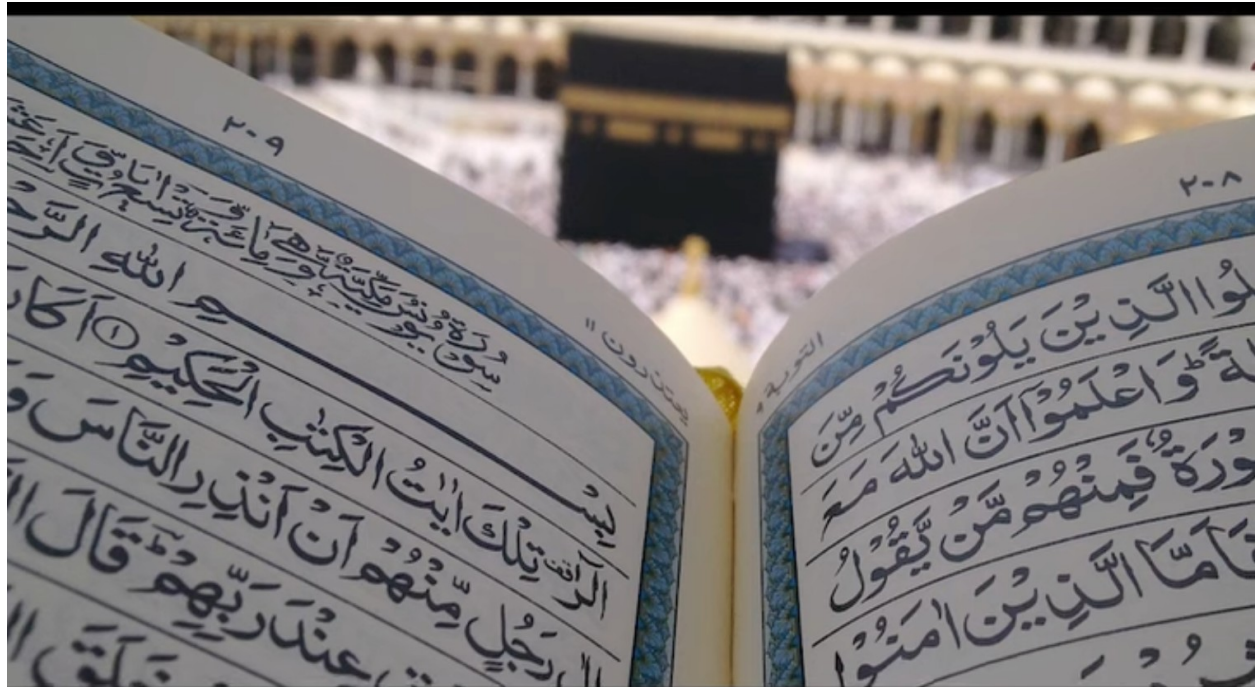 ٢٠٨
التوبة ٩
لُوا الَّذِيْنَ يَلُوْنَكُمْ مِّنَ
وَاعْلَمُوْٓا اَنَّ اللّٰهَ مَعَ
فَمِنْهُمْ مَّنْ يَّقُوْلُ
فَاَمَّا الَّذِيْنَ اٰمَنُوْا
٢٠٩
يعتذرون ١١
سُوْرَةُ يُوْنُسَ مَكِّيَّةٌ وَّهِيَ مِائَةٌ وَّتِسْعُ اٰيَاتٍ
بِسْــــــمِ اللّٰهِ
الٓرٰ ۟ تِلْكَ اٰيٰتُ الْكِتٰبِ الْحَكِيْمِ ۝١ اَكَانَ
رَجُلٍ مِّنْهُمْ اَنْ اَنْذِرِ النَّاسَ
عِنْدَ رَبِّهِمْ ؔ قَالَ